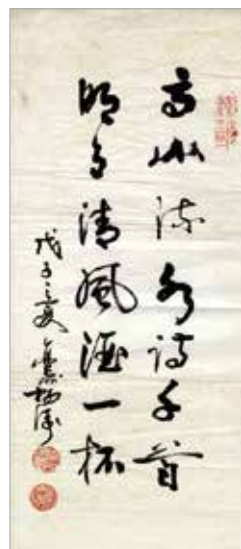 高山流水诗千首
明月清风酒一杯
戊子之夏